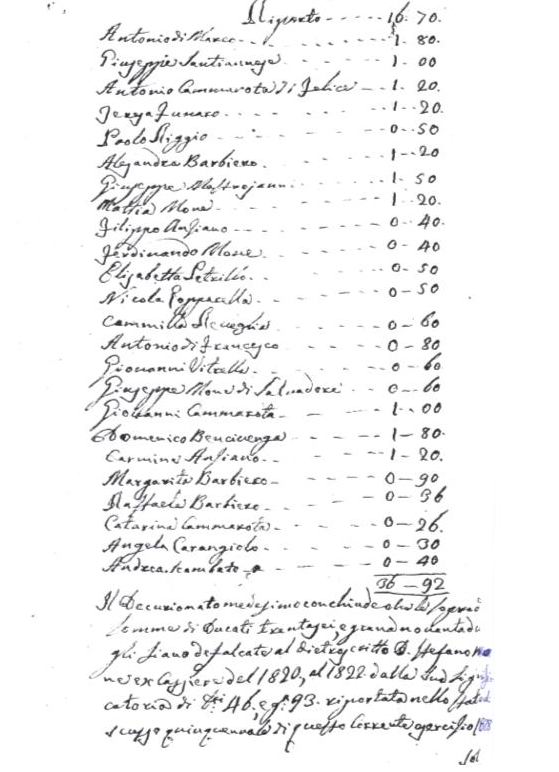 Riporto - - - - - 16. 70.
Antonio di Marco - - - - - - - 1. 80.
Giuseppe Santiannaje - - - - - 1. 00
Antonio Cammarota di Felice - - 1. 20.
- - - - 1. 20
Paolo Riggio - - - - - - 0 - - 50
Alejandra Barbiero. - - - - 1 - - 20
Giuseppe Mastrojanni - - - - 1. 50
Mattia Mone - - - - - - 1. 20.
Filippo Ansiano - - - - - 0 - 40.
Ferdinando Mone - - - - - 0 - 40
Elisabetta Petrillo - - - - 0 - 50
Nicola - - - - 0 - 50
Cammilla - - - - 0 - 60
Antonio di Francesco - - - - 0 - 80
Giovanni Vitrella - - - - 0 - 60
Giuseppe Mone di Salvadore - - 0 - 60
Giovanni Cammarota - - - - 1 - 00
Domenico Bencivenga - - - - 1 - 80.
Carmina Ansiano - - - - 1 - 20.
Margarita Barbiero - - - - 0 - 90
Raffaela Barbiero - - - - 0 - 36
Catarina Cammarota - - - - 0 - 26.
Angela Carangiolo - - - - 0 - 30
Andrea - - - - 0 - 40
36 - 92
Il Decurionato medesimo conchiude che le sopra
somme di Ducati trentasei, e grana novantadu
gli siano defalcate al dietroscritto D. Stefano Mo
ne ex Cassiere del 1820, al 1822 dalla sud Signifi
catoria di 46, e g. 93. riportata nello stat
scusse quinquennale di questo corrente esercizio 1828